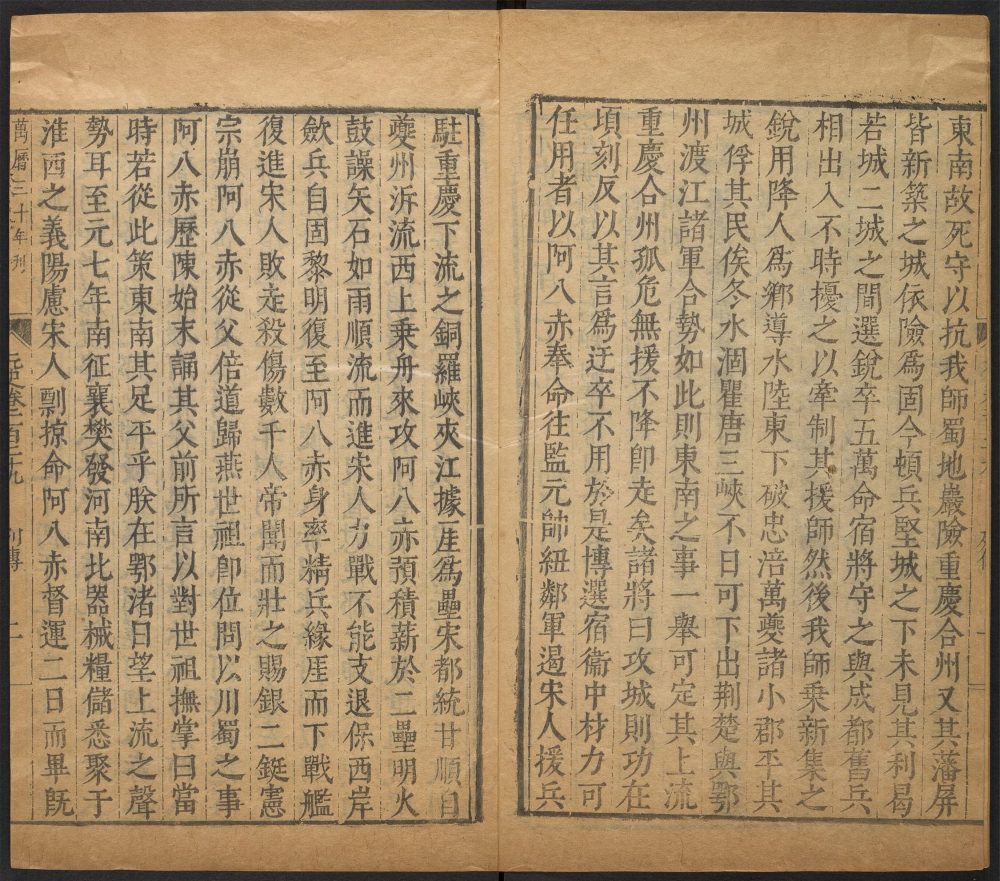 東南故死守以抗我師蜀地巖險重慶合州又其藩屏
皆新築之城依險爲固今頓兵堅城之下未見其利曷
若城二城之間選銳卒五萬命宿將守之與成都舊兵
相出入不時擾之以牽制其援師然後我師乗新集之
銳用降人爲鄉導水陸東下破忠涪萬夔諸小郡平其
城俘其民俟冬水涸瞿唐三峽不日可下出荆楚與鄂
州渡江諸軍合勢如此則東南之事一舉可定其上流
重慶合州孤危無援不降卽走矣諸將曰攻城則功在
頃刻反以其言爲迂卒不用於是博選宿衞中材力可
任用者以阿八赤奉命往監元帥紐鄰軍遏宋人援兵
駐重慶下流之銅羅峽夾江據崖爲壘宋都統甘順自
夔州泝流西上乗舟來攻阿八赤預積薪於二壘明火
鼓譟矢石如雨順流而進宋人力戰不能支退保西岸
斂兵自固黎明復至阿八赤身率精兵緣崖而下戰艦
復進宋人敗走殺傷數千人帝聞而壯之賜銀二鋌憲
宗崩阿八赤從父倍道歸燕世祖卽位問以川蜀之事
阿八赤歷陳始末誦其父前所言以對世祖撫掌曰當
時若從此策東南其足平乎朕在鄂渚日望上流之聲
勢耳至元七年南征襄樊發河南北器械糧儲悉聚于
淮西之義陽慮宋人剽掠命阿八赤督運二日而畢旣
萬曆三十年刊
列傳 二